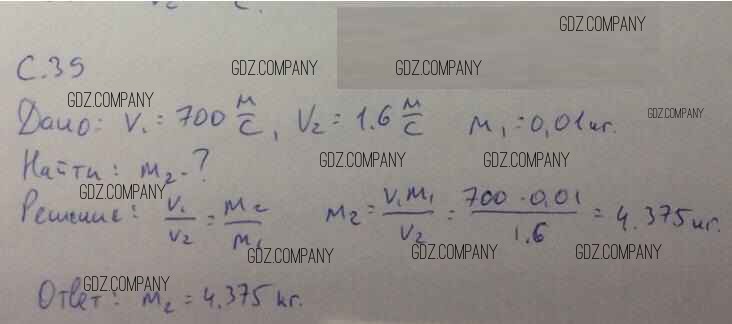 GDZ.COMPANY
С.39 GDZ.COMPANY GDZ.COMPANY
GDZ.COMPANY GDZ.COMPANY
Дано: V₁ = 700 м/с, V₂ = 1.6 м/с m₁ = 0,01 кг.
Найти: m₂ - ? GDZ.COMPANY GDZ.COMPANY
GDZ.COMPANY
Решение: V₁/V₂ = m₂/m₁ m₂ = V₁m₁/V₂ = 700 · 0,01/1.6 = 4.375 кг.
GDZ.COMPANY GDZ.COMPANY GDZ.COMPANY
GDZ.COMPANY
Ответ: m₂ = 4.375 кг.